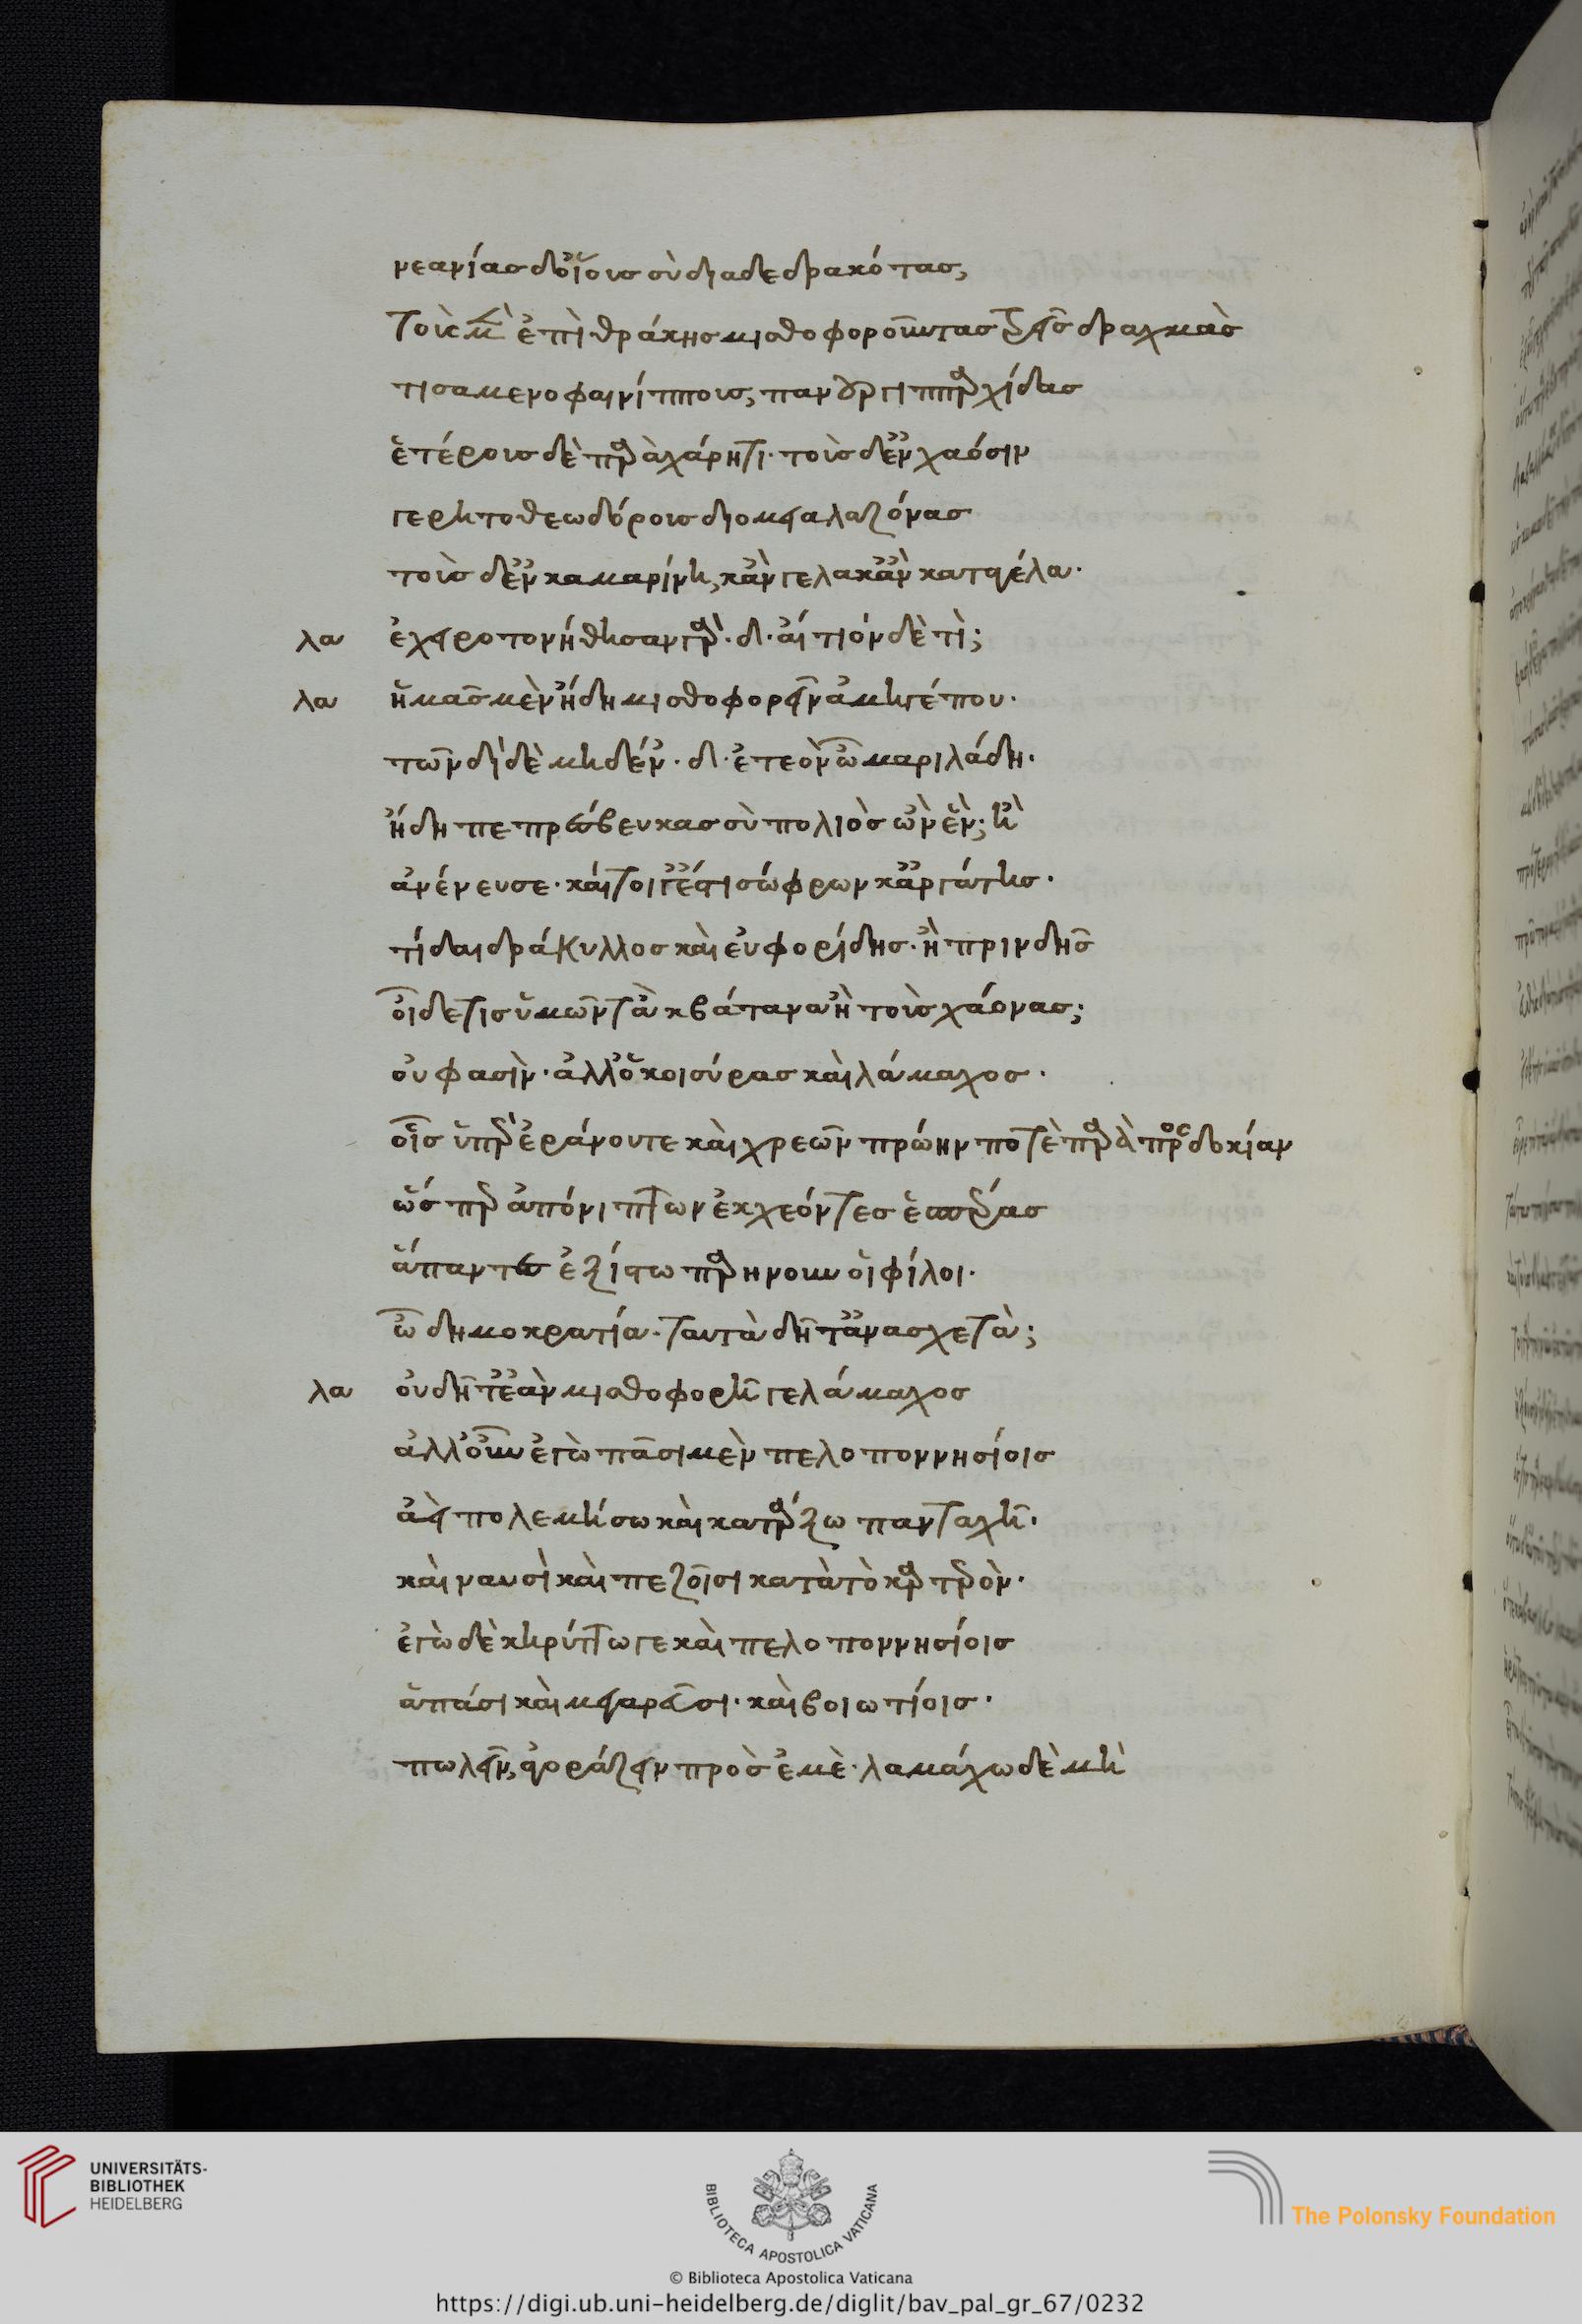 νεανίας δ' οἵους σὺ διαδεδρακότας,
τοὺς μὲν ἐπὶ θράκης μισθοφοροῦντας τρεῖς δραχμὰς
τισαμενοφαινίππους, πανουργιππαρχίδας
ἑτέρους δὲ παρὰ χάρητι· τοὺς δ' ἐν χαόσιν
γερητοθεωδώρους διομειαλαζόνας
τοὺς δ' ἐν καμαρίνη, κἀν γέλα κἀν καταγέλα·
λα ἐχειροτονήθησαν γάρ· δι· αἴτιον δὲ τὶ;
λα ἡμᾶς μὲν ἤδη μισθοφορεῖν ἀμηγέπου·
τῶνδὶ δὲ μηδέν· δι· ἐτεὸν ὦ μαριλάδη·
ἤδη πεπρέσβευκας σὺ πολιὸς ὢν ἓν; ἢ
ἀνένευσε· καίτοι γ' ἐστὶ σώφρων κἀργάτης·
τί δαὶ δράκυλλος καὶ εὐφορίδης· ἢ πρινδης
οἶδε τις ὑμῶν τἀκβάτανα ἢ τοὺς χάονας;
οὔ φασιν· ἀλλ' ὁ κοισύρας καὶ λάμαχος·
οἷς ὑπὲρ ἐράνου τε καὶ χρεῶν πρώην ποτὲ παρὰ προσδοκίαν
ὥσπερ ἀπόνιπτρων ἐκχεόντες ἑσπέρας
ἅπαντες ἐξίστω παρήνουν οἱ φίλοι·
ὦ δημοκρατία· ταῦτα δῆτ' ἀνασχετὰ;
λα οὐ δῆτ' ἐὰν μισθοφορῆ γε λάμαχος
ἀλλ' οὖν ἐγὼ πᾶσι μὲν πελοποννησίοις
ἀεὶ πολεμήσω καὶ καταράξω πανταχῆ·
καὶ ναυσὶ καὶ πεζοῖσι κατὰ τὸ καρτερὸν·
ἐγὼ δὲ κηρύττω γε καὶ πελοποννησίοις
ἅπασι καὶ μεγαρεῦσι· καὶ βοιωτίοις·
πωλεῖν, ἀγοράζειν πρὸς ἐμὲ· λαμάχω δὲ μὴ
UNIVERSITÄTS-
BIBLIOTHEK
HEIDELBERG
BIBLIOTECA APOSTOLICA VATICANA
The Polonsky Foundation
© Biblioteca Apostolica Vaticana
https://digi.ub.uni-heidelberg.de/diglit/bav_pal_gr_67/0232